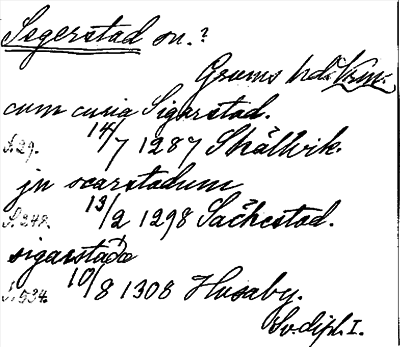 Segerstad sn.?
Grums hd. Vrml.
cum curia Sigarstad.
S. 29. 14/7 1287 Skällvik.
jn scarstadum
S. 248. 13/2 1298 Säckestad.
sigarstada
S. 534. 10/8 1308 Husaby.
Sv. dipl. I.